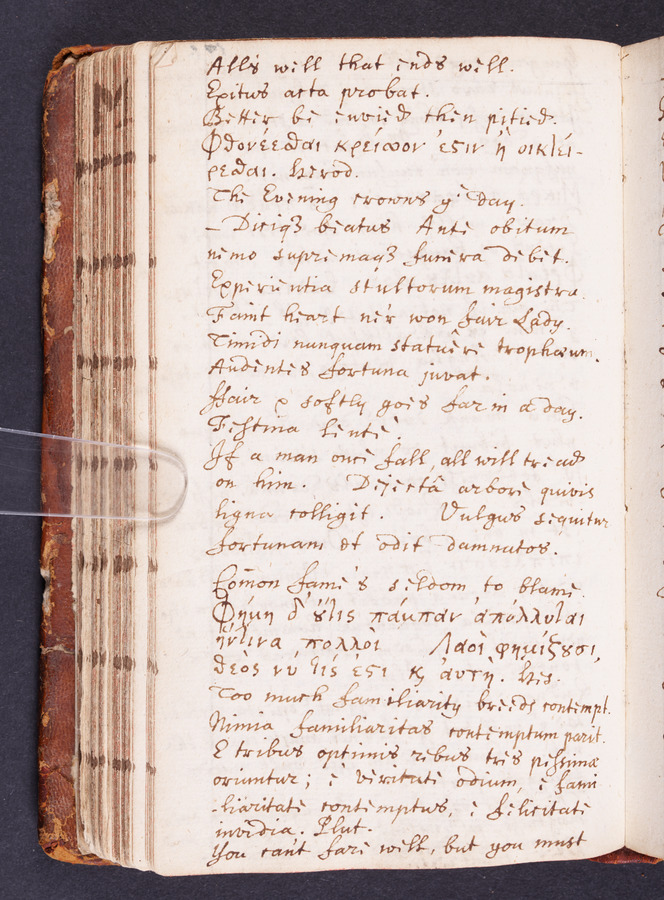 All's well that ends well.
Exitus acta probat.
Better be envied then pitied.
Φθονέεσθαι κρεῖσσον ἐστιν ἢ οἰκτεί-
ρεσθαι. Herod.
The Evening crowns yᵉ day.
– Diciqꝫ beatus Ante obitum
nemo supremaqꝫ funera debet.
Experientia stultorum magistra.
Faint heart ne'r won fair Lady.
Timidi nunquam statuere trophæum.
Audentes fortuna juvat.
Fair & softly goes far in a day.
Festina lentè.
If a man once fall, all will tread
on him. Dejectâ arbore quivis
ligna colligit. Vulgus sequitur
fortunam et odit damnatos.
Com̄on fame's seldom to blame.
Φήμη δ' ȣ̓́τις πάμπαν ἀπόλλυται
ἥντινα πολλοὶ Λαοὶ φημίζȣσι,
θεός νύ τίς ἐστι ϗ ἀυτή. Hes.
Too much familiarity breeds contempt.
Nimia familiaritas contemptum parit.
E tribus optimis rebus tres pessimæ
oriuntur; è veritate odium, è fami
-liaritate contemptus, è felicitate
invidia. Plut.
You can't fare well, but you must